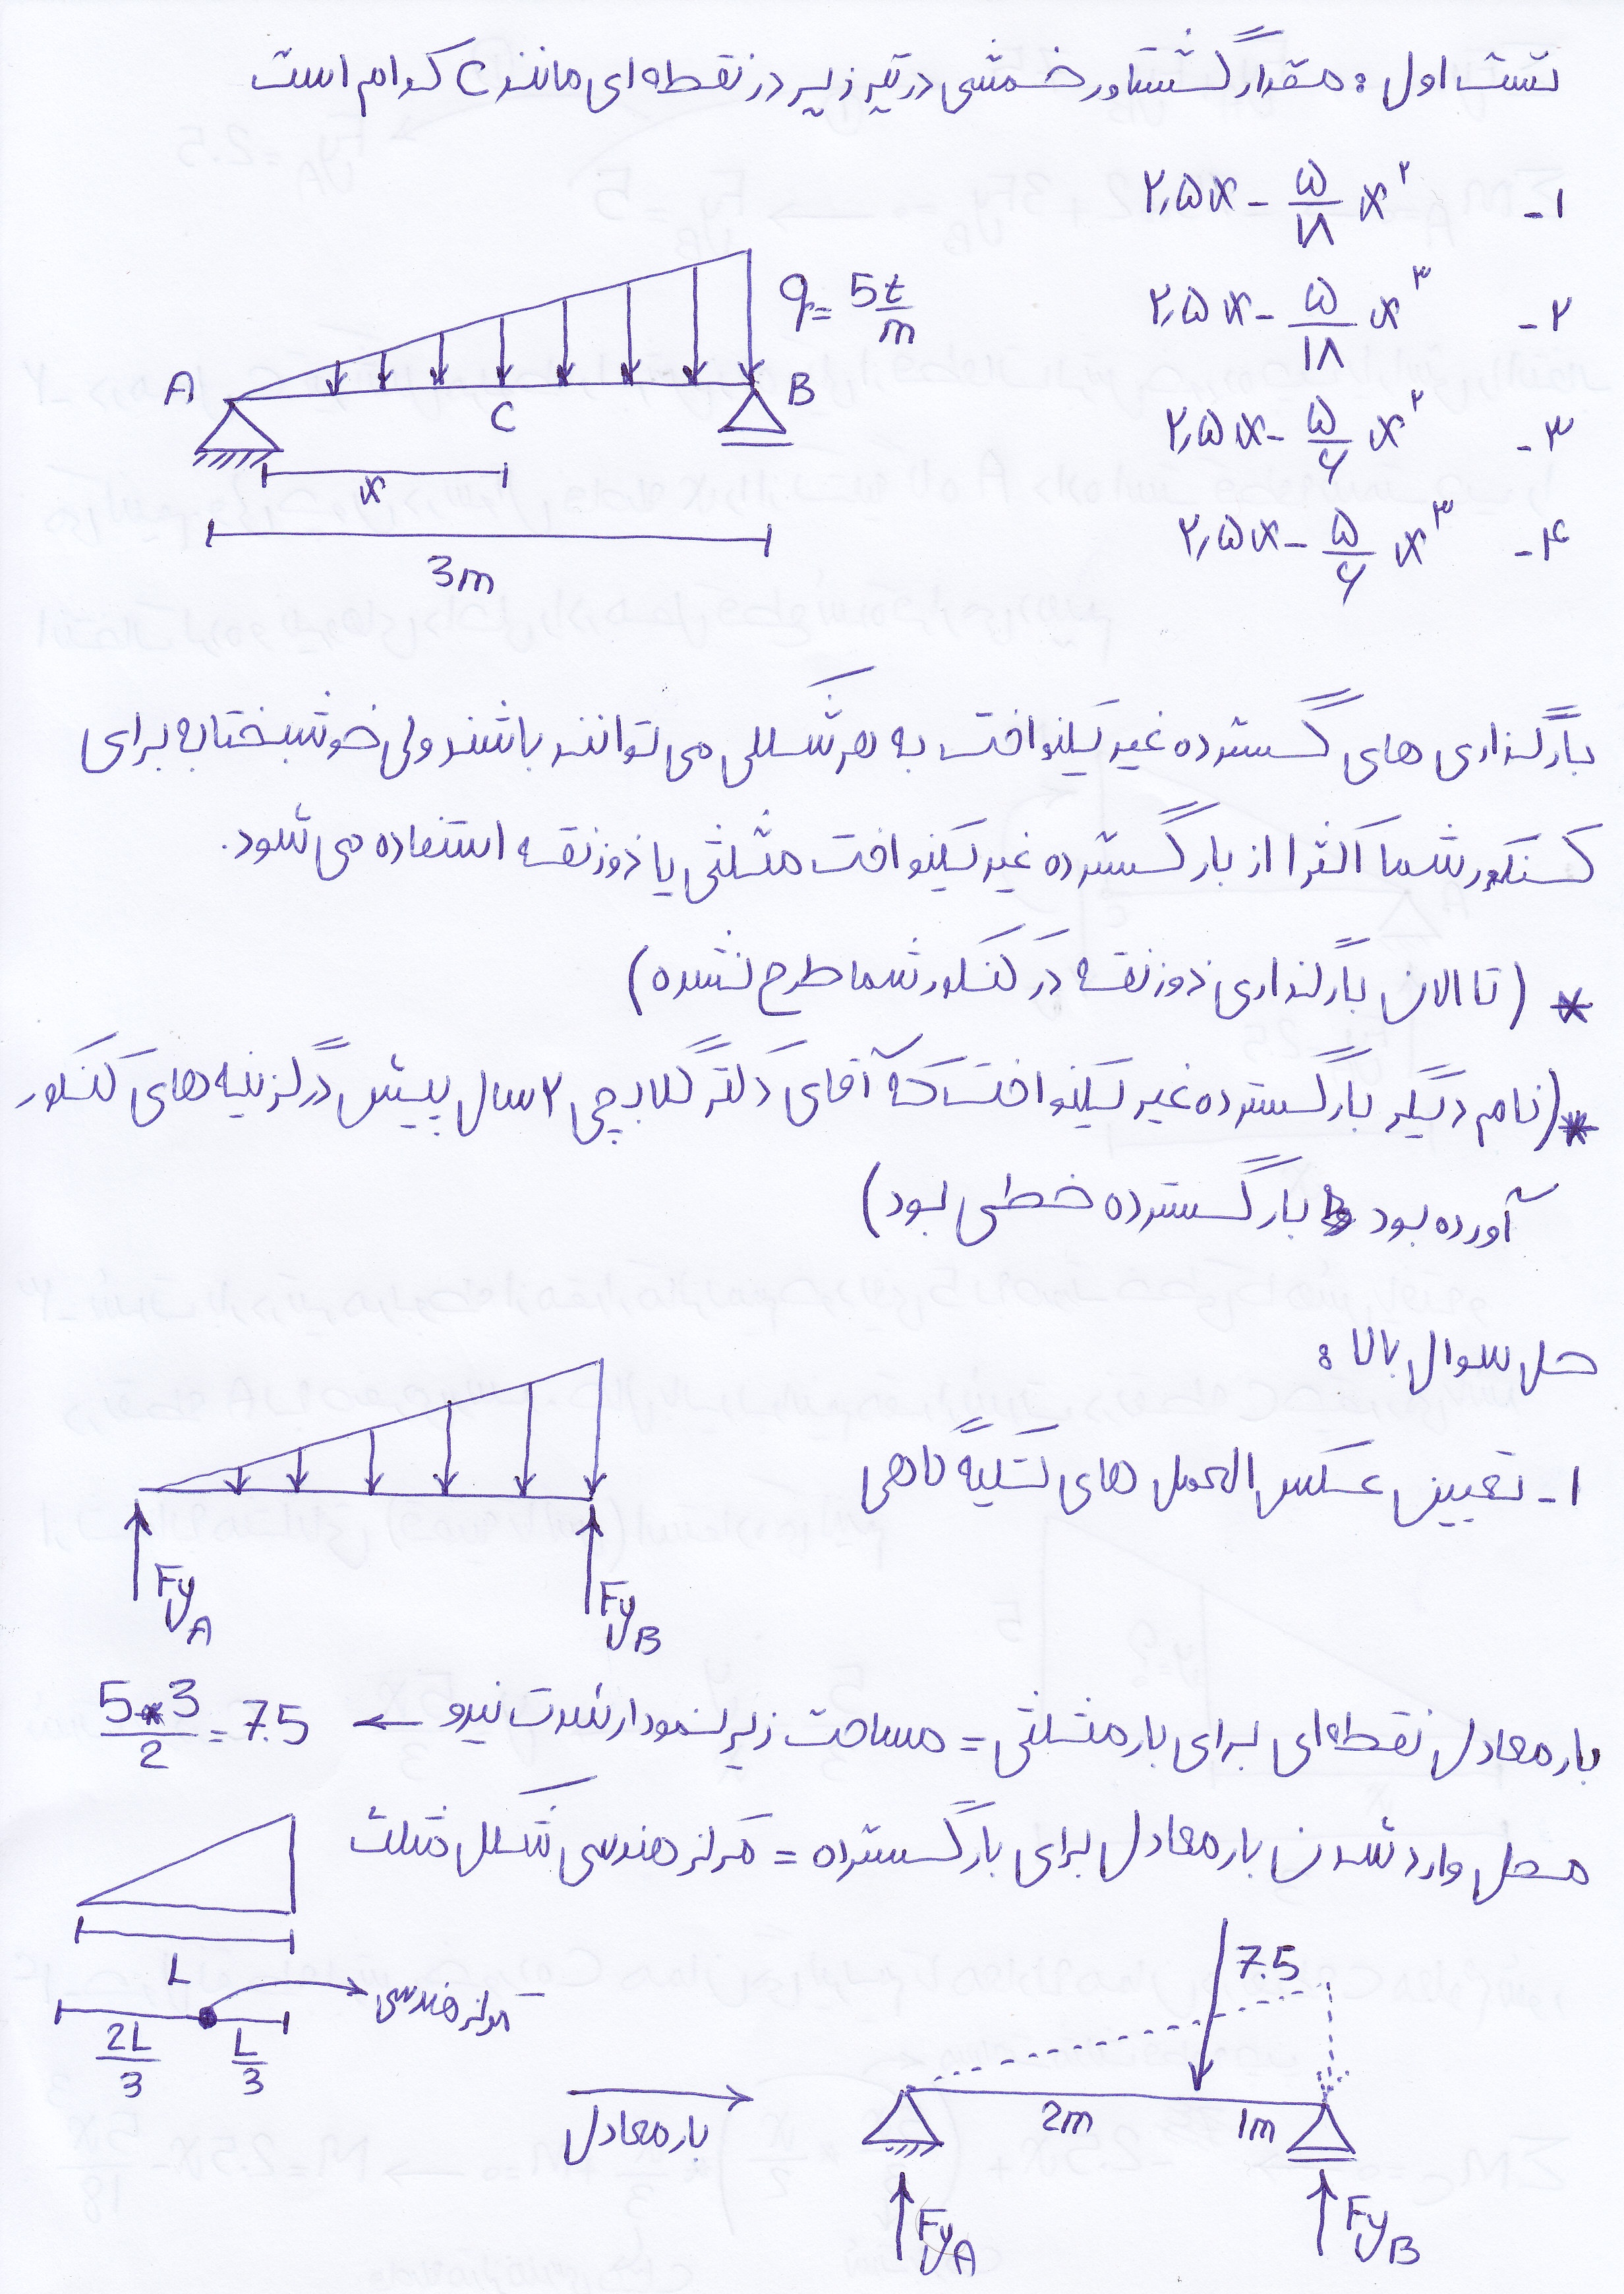 تست اول : مقدار گشتاور خمشی در تیر زیر در نقطه ای مانند C کدام است
۱- ۲٫۵x - ۵/۱۸ x²
۲- ۲٫۵x - ۵/۱۸ x³
۳- ۲٫۵x - ۵/۶ x²
۴- ۲٫۵x - ۵/۶ x³
q = 5 t/m
A
C
B
x
3m
بارگذاری های گسترده غیر یکنواخت به هر شکلی می توانند باشند ولی خوشبختانه برای
کنکور شما اکثرا از بار گسترده غیر یکنواخت مثلثی یا ذوزنقه استفاده می شود.
* (تا الان بارگذاری ذوزنقه در کنکور شما طرح نشده)
* (نام دیگر بار گسترده غیر یکنواخت که آقای دکتر گلابچی ۲ سال پیش در گزینه های کنکور
آورده بود بار گسترده خطی بود)
حل سوال بالا :
۱- تعیین عکس العمل های تکیه گاهی
FyA
FyB
بار معادل نقطه ای برای بار مثلثی = مساحت زیر نمودار شدت نیرو ← 5*3/2 = 7.5
محل وارد شدن بار معادل برای بار گسترده = مرکز هندسی شکل مثلث
L
مرکز هندسی
2L/3
L/3
بار معادل
7.5
2m
1m
FyA
FyB